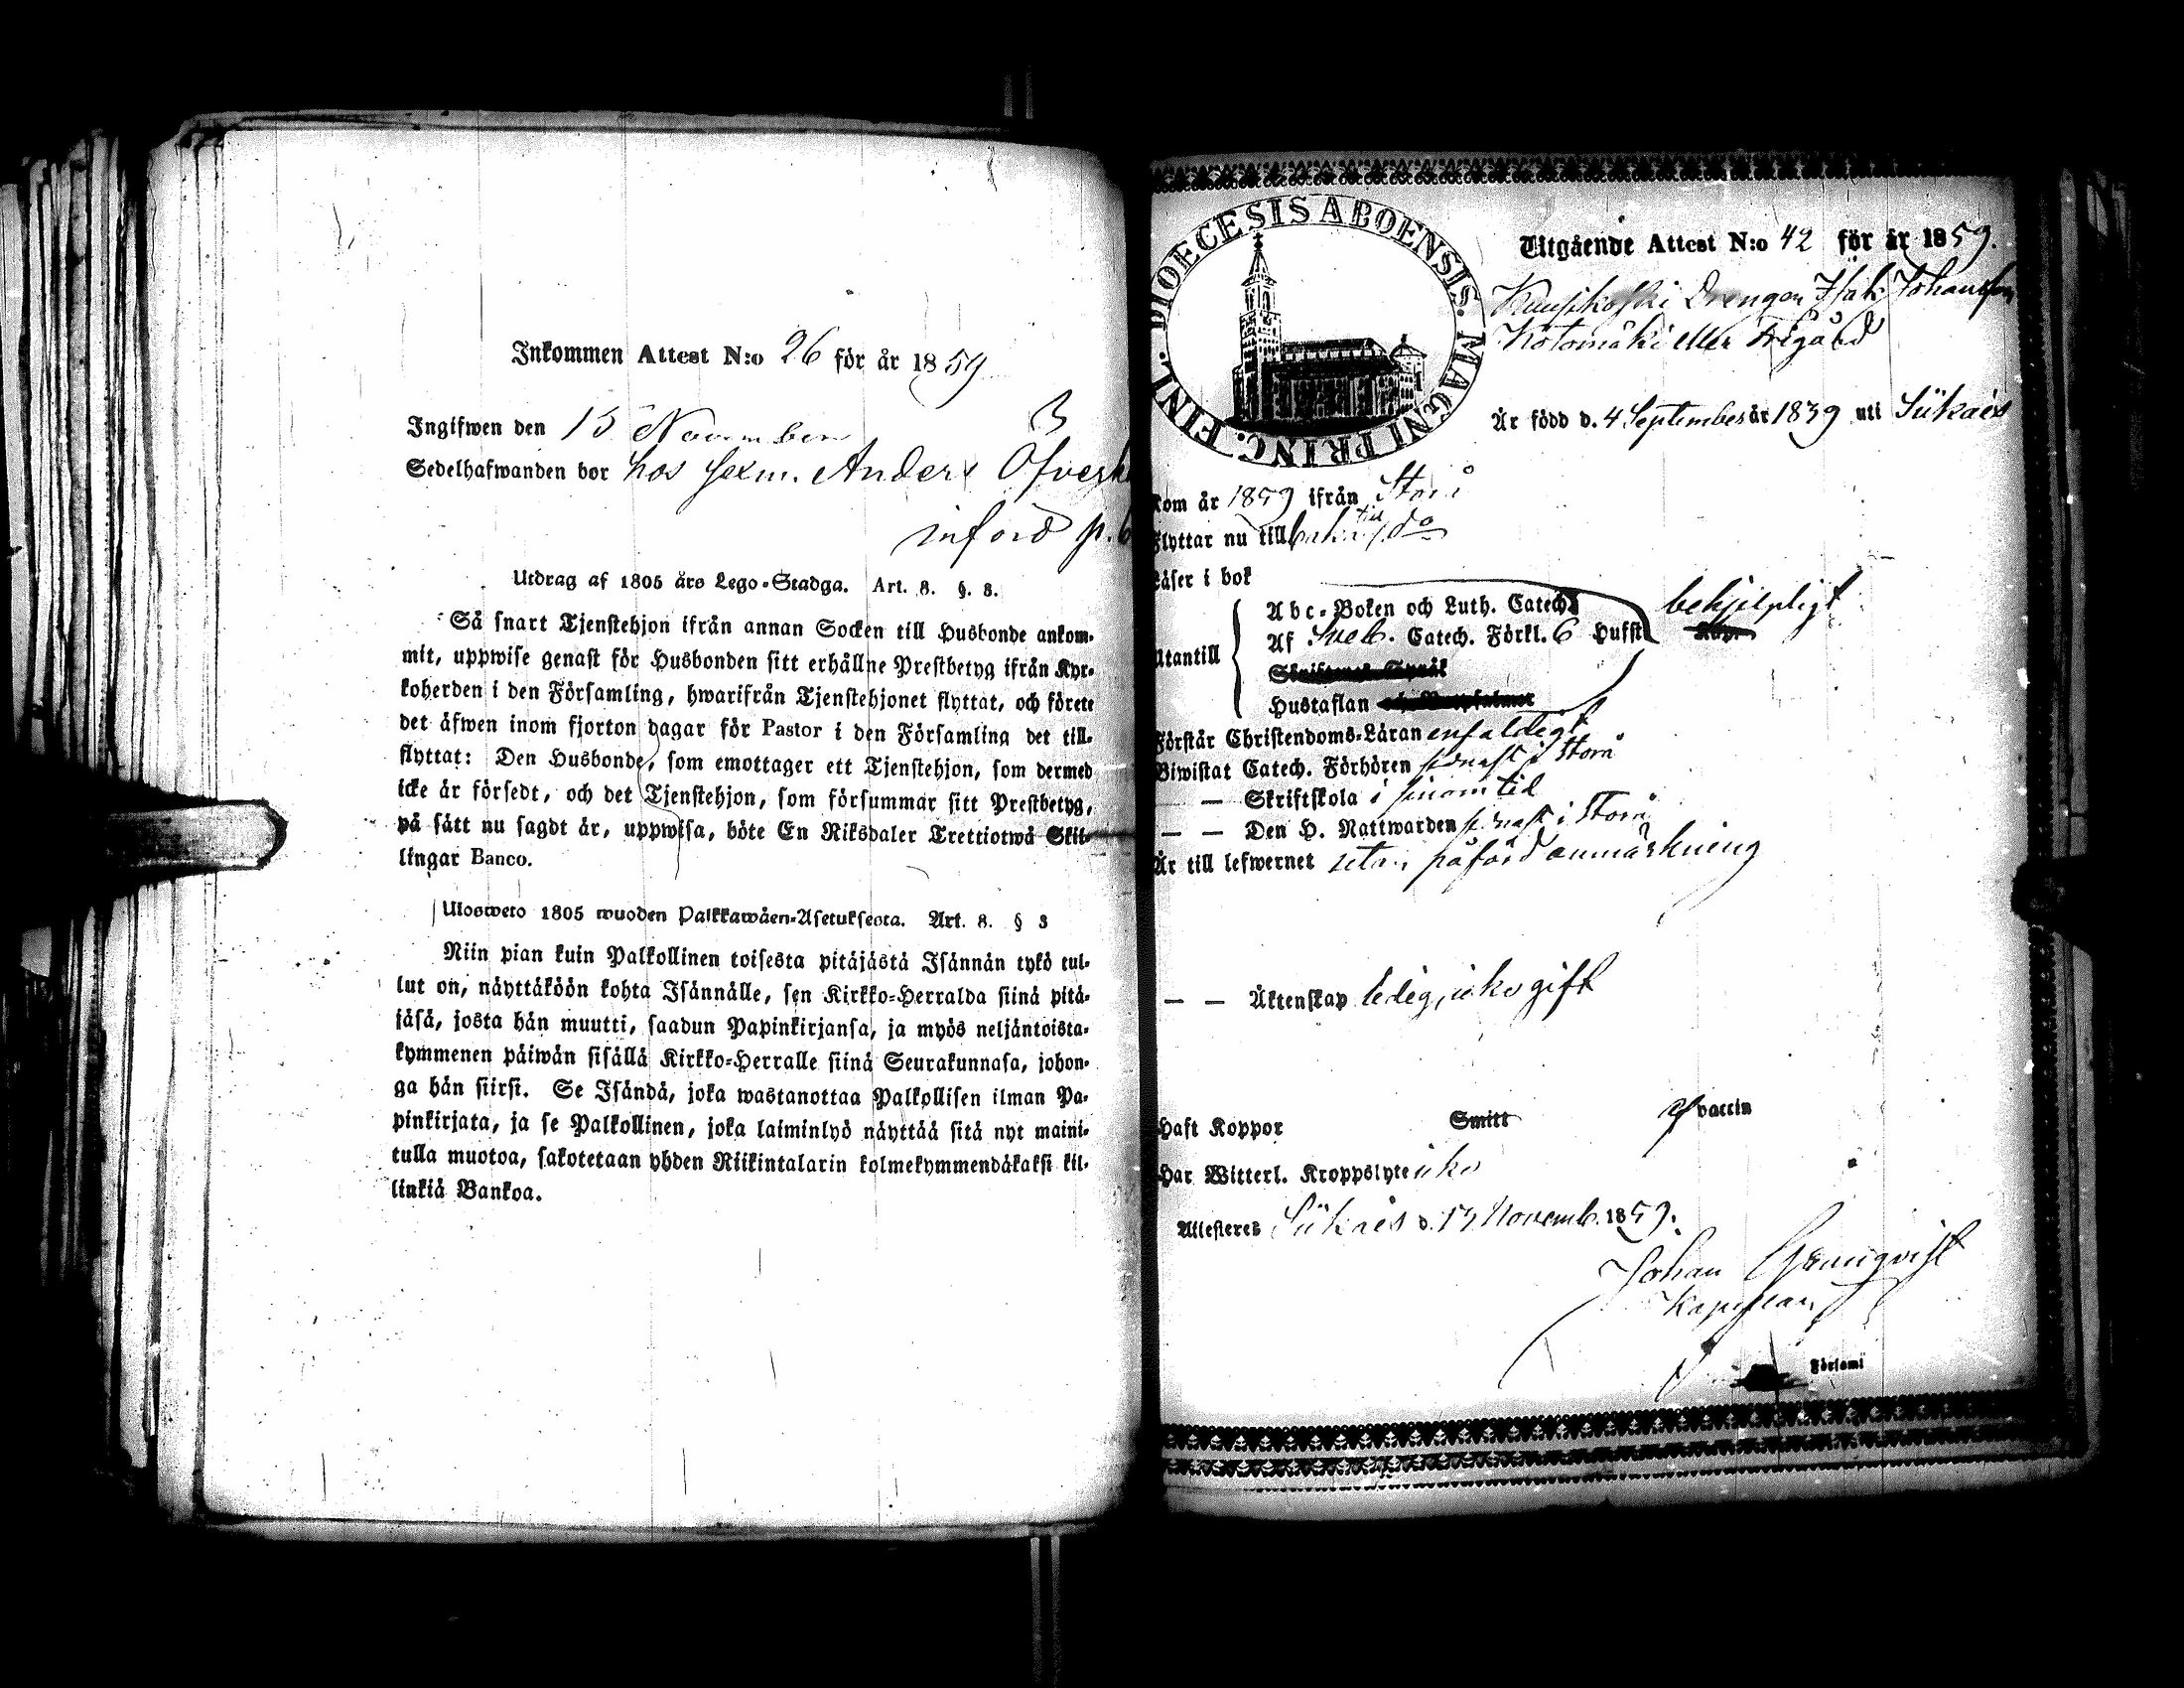 Inkommen Attest N:o 26 för år 1859
Ingifwen den 15 November
Sedelhafwanden bor hos sexm. Anders Öfver
införd p. 6
Utdrag af 1805 års Lego-Stadga. Art. 8. §. 3.
Så snart Tjenstehjon ifrån annan Socken till Husbonde ankom-
mit, uppwise genast för Husbonden sitt erhållne Prestbetyg ifrån Kyr-
koherden i den Församling, hwarifrån Tjenstehjonet flyttat, och förete
det äfwen inom fjorton dagar för Pastor i den Församling det till-
flyttat: Den Husbonde, som emottager ett Tjenstehjon, som dermed
icke är försedt, och det Tjenstehjon, som försummar sitt Prestbetyg,
på sätt nu sagdt är, uppwisa, böte En Riksdaler Trettiotwå Skil-
lingar Banco.
Ulosweto 1805 wuoden Palkkawäen-Asetuksesta. Art. 8. § 3
Niin pian kuin Palkollinen toisesta pitäjästä Isännän tykö tul-
lut on, näyttäköön kohta Isännälle, sen Kirkko-Herralda siinä pitä-
jäsä, josta hän muutti, saadun Papinkirjansa, ja myös neljäntoista-
kymmenen päiwän sisällä Kirkko-Herralle siinä Seurakunnasa, johon-
ga hän siirsi. Se Isändä, joka wastanottaa Palkollisen ilman Pa-
pinkirjata, ja se Palkollinen, joka laiminlyö näyttää sitä nyt maini-
tulla muotoa, sakotetaan yhden Riikintalarin kolmekymmendäkaksi kil-
linkiä Bankoa.
DIOECESIS ABOENSIS. MAGNI PRINC. FINL.
Utgående Attest N:o 42 för år 1859.
Drengen Isak Johansson
Kotomäki eller Frigård
Är född d. 4 September år 1839 uti Siikais
Kom år 1859 ifrån Storå
Flyttar nu till baka till do
Läser i bok
Abc-Boken och Luth. Catech.
Af Sveb. Catech. Förkl. 6 Hufst. behjelpligt
Utantill
Skriftenes Språk
Hustaflan
Förstår Christendoms-Läran enfaldigt
Biwistat Catech. Förhören senast i Storå
— — Skriftskola i sinom tid
— — Den H. Nattwarden senast i Storå
Är till lefwernet utan påförd anmärkning
— — Äktenskap ledig, icke gift
Haft Koppor Smitt vaccin
Har Witterl. Kroppslyte icke
Attesteres Siikais d. 13 Novemb. 1859.
Johan Grönqvist
Kapellan
Församl